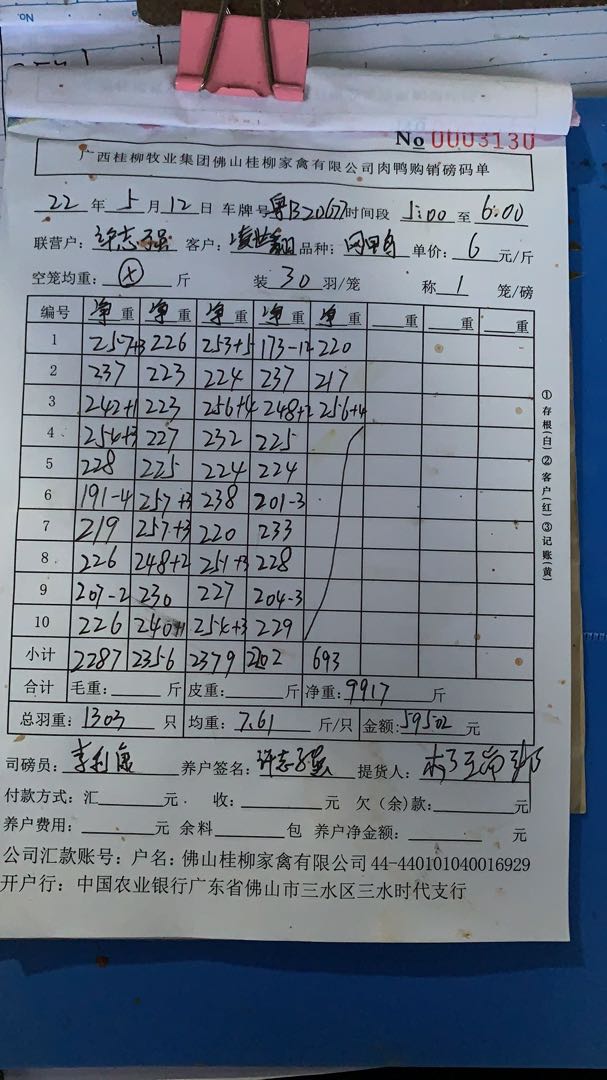 No.
No 0003130
广西桂柳牧业集团佛山桂柳家禽有限公司肉鸭购销磅码单
22 年 5 月 12 日 车牌号 粤B20677 时间段 5:00 至 6:00
联营户: 许志强 客户: 品种: 单价: 6 元/斤
空笼均重: 斤 装 30 羽/笼 称 1 笼/磅
编号 净重 净重 净重 净重 净重 重 重 重
1 257+3 226 253+5 173-12 220
2 237 223 224 237 217
3 242+1 223 256+4 248+2 256+4
4 254+3 227 232 225
5 228 225 224 224
6 191-4 257+3 238 201-3
7 219 257+3 220 233
8 226 248+2 251+3 228
9 207-2 230 227 204-3
10 226 240+1 254+3 229
小计 2287 2356 2379 2202 693
合计 毛重: 斤 皮重: 斤 净重: 9917 斤
总羽重: 1303 只 均重: 7.61 斤/只 金额: 59502 元
司磅员: 李利康 养户签名: 许志强 提货人:
付款方式: 汇 元 收: 元 欠(余)款: 元
养户费用: 元 余料 包 养户净金额: 元
公司汇款账号: 户名: 佛山桂柳家禽有限公司 44-440101040016929
开户行: 中国农业银行广东省佛山市三水区三水时代支行
①存根(白)②客户(红)③记账(黄)